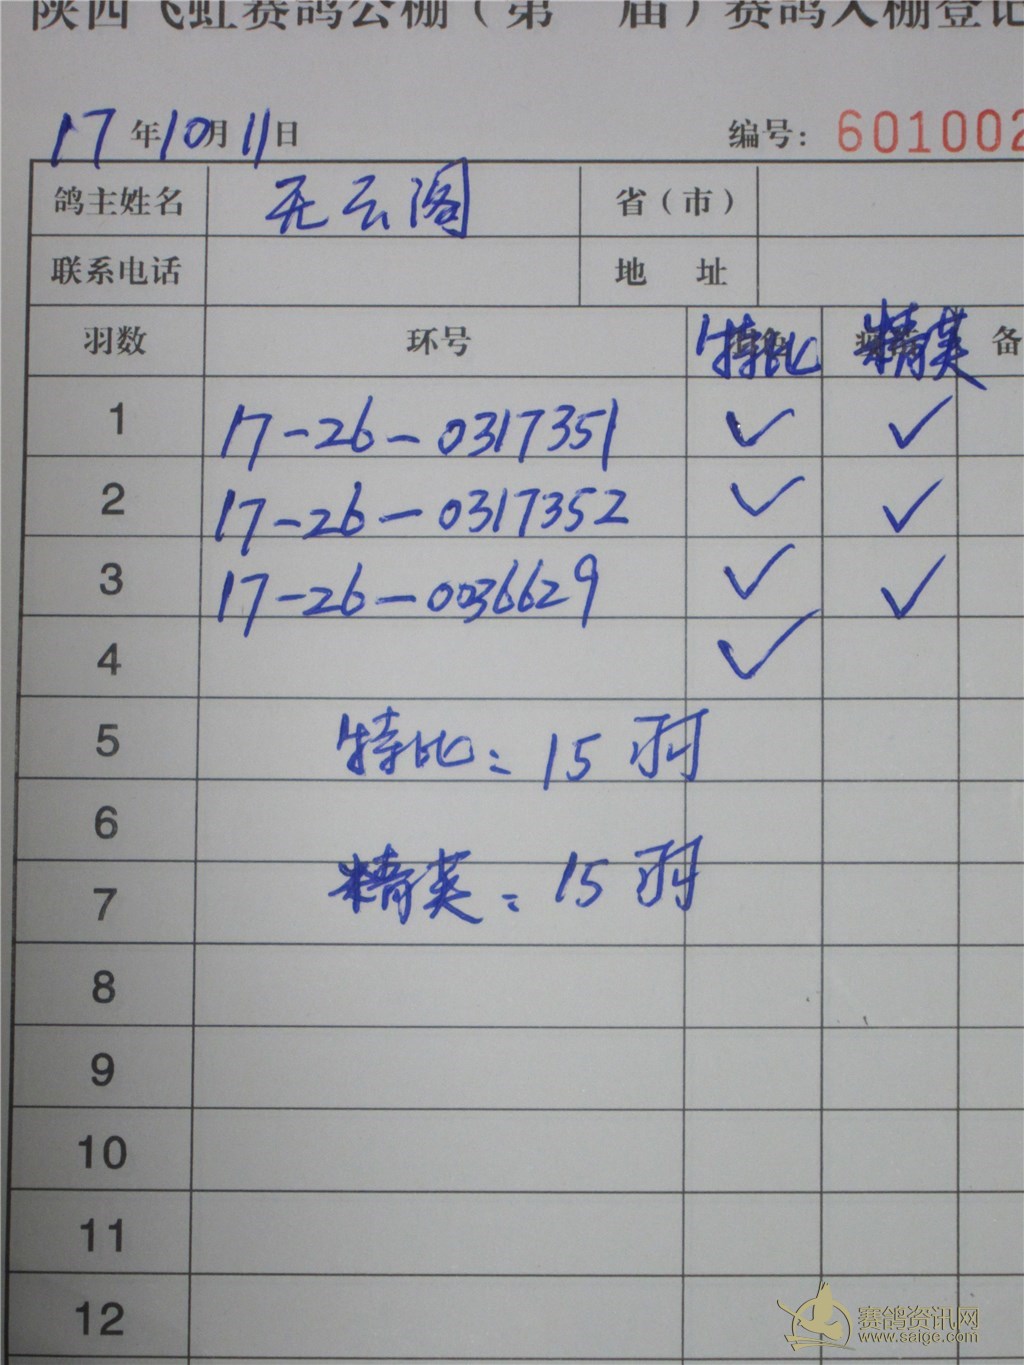 陕西飞虹赛鸽公棚（第 届）赛鸽入棚登记
17年10月11日 编号：601002
鸽主姓名 天云阁 省（市）
联系电话 地 址
羽数 环号 特比 精英 备
1 17-26-0317351 ✓ ✓
2 17-26-0317352 ✓ ✓
3 17-26-0036629 ✓ ✓
4 ✓
5 特比：15羽
6
7 精英：15羽
8
9
10
11
12
赛鸽资讯网
www.saige.com